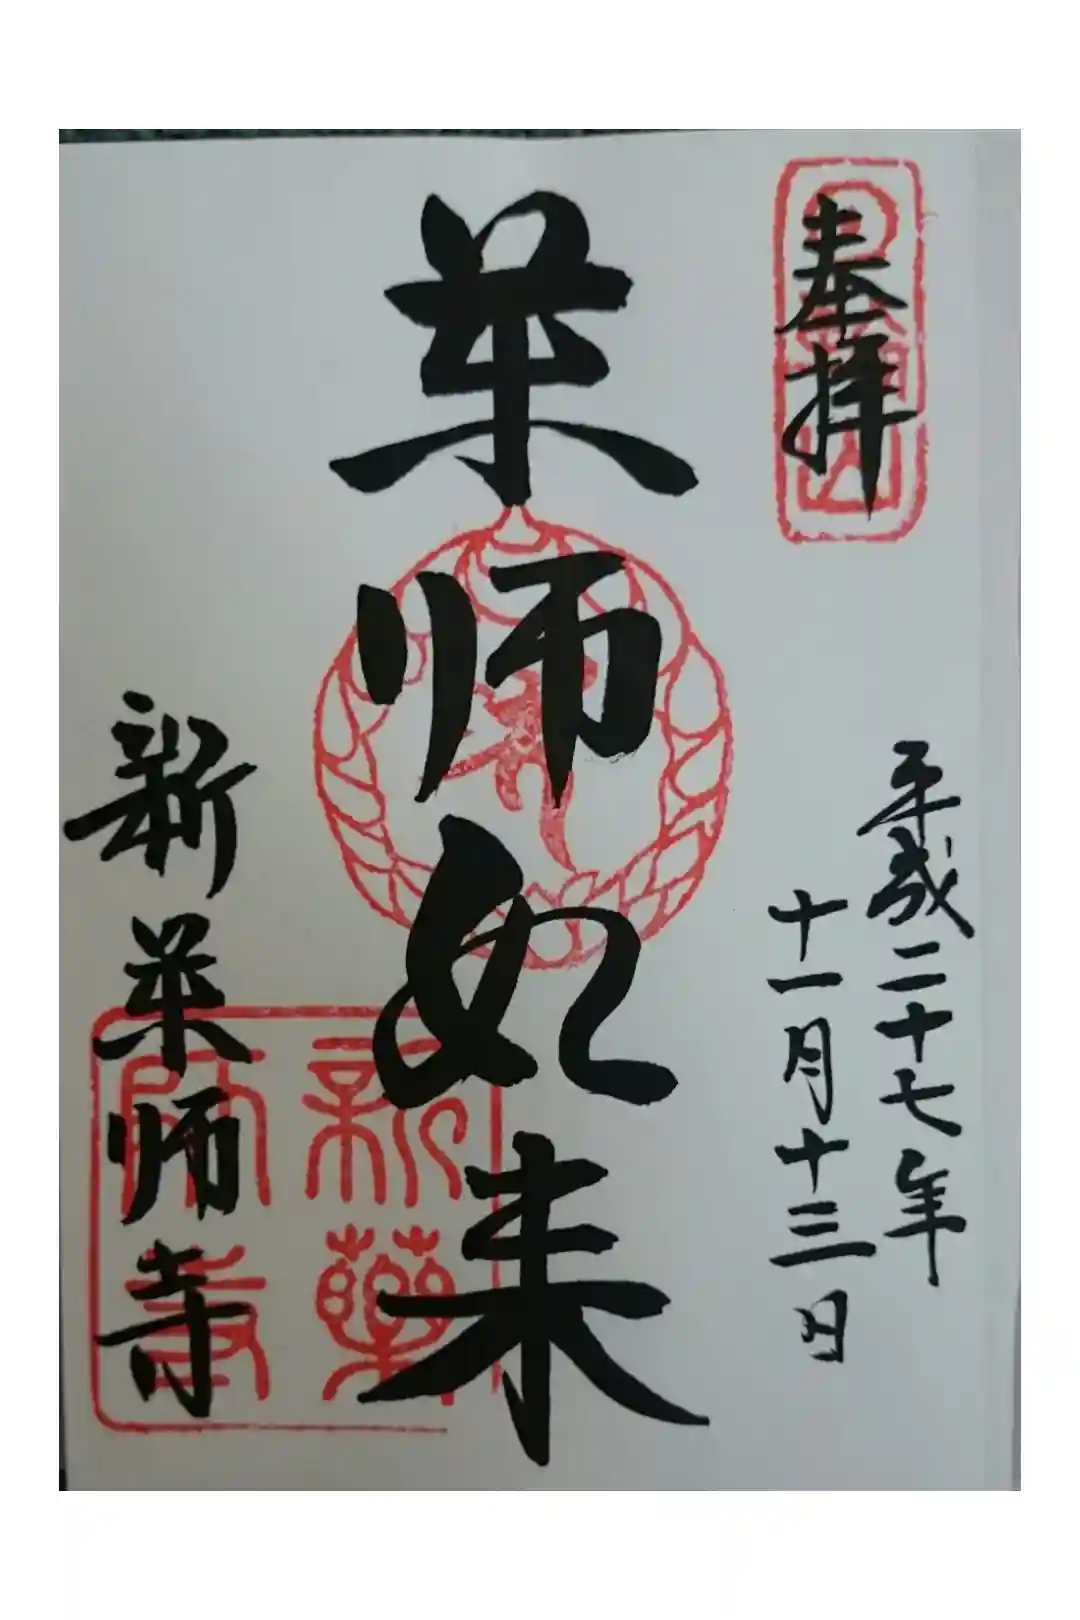 奉拝
平成二十七年
十一月十三日
薬師如来
新薬師寺
新薬師寺